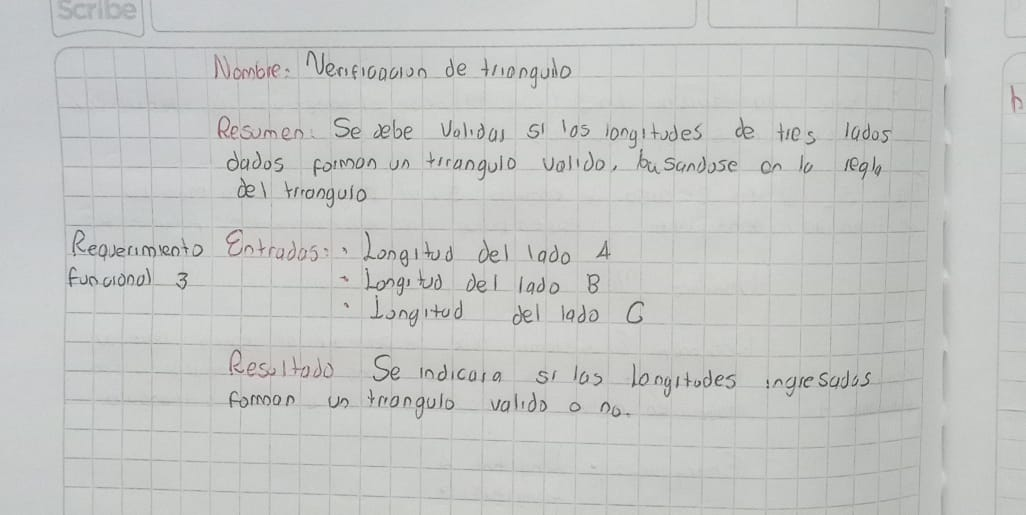 Scribe
Nombre: Verificacion de triangulo
Resumen: Se debe Validar si las longitudes de tres lados
dados forman un triangulo valido, basandose en la regla
del triangulo
Requerimiento Entradas: · Longitud del lado A
funcional 3 · Longitud del lado B
· Longitud del lado C
Resultado Se indicara si las longitudes ingresadas
forman un triangulo valido o no.
h